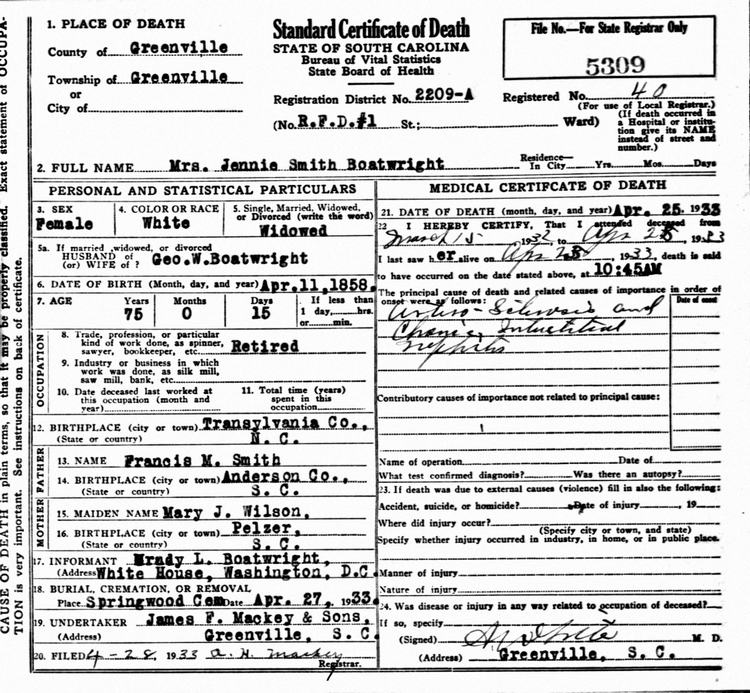 CAUSE OF DEATH in plain terms, so that it may be properly classified. Exact statement of OCCUPA-
TION is very important. See instructions on back of certificate.
1. PLACE OF DEATH
County of Greenville
Township of Greenville
or
City of
Standard Certificate of Death
STATE OF SOUTH CAROLINA
Bureau of Vital Statistics
State Board of Health
Registration District No. 2209-A
(No. R.F.D.#1 St.; Ward)
File No.—For State Registrar Only
5309
Registered No. 40
(For use of Local Registrar.)
(If death occurred in
a Hospital or institu-
tion give its NAME
instead of street and
number.)
2. FULL NAME Mrs. Jennie Smith Boatwright
Residence—
In City Yrs. Mos. Days
PERSONAL AND STATISTICAL PARTICULARS
3. SEX
Female
4. COLOR OR RACE
White
5. Single, Married, Widowed,
or Divorced (write the word)
Widowed
5a. If married, widowed, or divorced
HUSBAND of
(or) WIFE of ? Geo.W.Boatwright
6. DATE OF BIRTH (Month, day, and year) Apr.11,1858.
7. AGE Years Months Days
75 0 15
If less than
1 day,....hrs.
or....min.
OCCUPATION
8. Trade, profession, or particular
kind of work done, as spinner,
sawyer, bookkeeper, etc. Retired
9. Industry or business in which
work was done, as silk mill,
saw mill, bank, etc.
10. Date deceased last worked at
this occupation (month and
year)
11. Total time (years)
spent in this
occupation
12. BIRTHPLACE (city or town) Transylvania Co.,
(State or country) N. C.
FATHER
13. NAME Francis M. Smith
14. BIRTHPLACE (city or town) Anderson Co.,
(State or country) S. C.
MOTHER
15. MAIDEN NAME Mary J. Wilson,
16. BIRTHPLACE (city or town) Pelzer,
(State or country) S. C.
17. INFORMANT L. Boatwright,
(Address) White House, Washington, D.C.
18. BURIAL, CREMATION, OR REMOVAL
Place Springwood Cem Date Apr. 27, 1933.
19. UNDERTAKER James F. Mackey & Sons,
(Address) Greenville, S. C.
20. FILED 4-28, 1933 A. H. Mackey
Registrar.
MEDICAL CERTIFCATE OF DEATH
21. DATE OF DEATH (month, day, and year) Apr. 25, 1933
22 I HEREBY CERTIFY, That I attended deceased from
March 15 1932 to Apr 25, 1933
I last saw her alive on Apr 25 1933, death is said
to have occurred on the date stated above, at 10:45AM
The principal cause of death and related causes of importance in order of
onset were as follows:
Date of onset
Arterio-Sclerosis and
Chronic Interstitial
Nephritis
Contributory causes of importance not related to principal cause:
Name of operation Date of
What test confirmed diagnosis? Was there an autopsy?
23. If death was due to external causes (violence) fill in also the following:
Accident, suicide, or homicide? Date of injury , 19
Where did injury occur?
(Specify city or town, and state)
Specify whether injury occurred in industry, in home, or in public place.
Manner of injury
Nature of injury
24. Was disease or injury in any way related to occupation of deceased?
If so, specify
(Signed) White M. D.
(Address) Greenville, S. C.